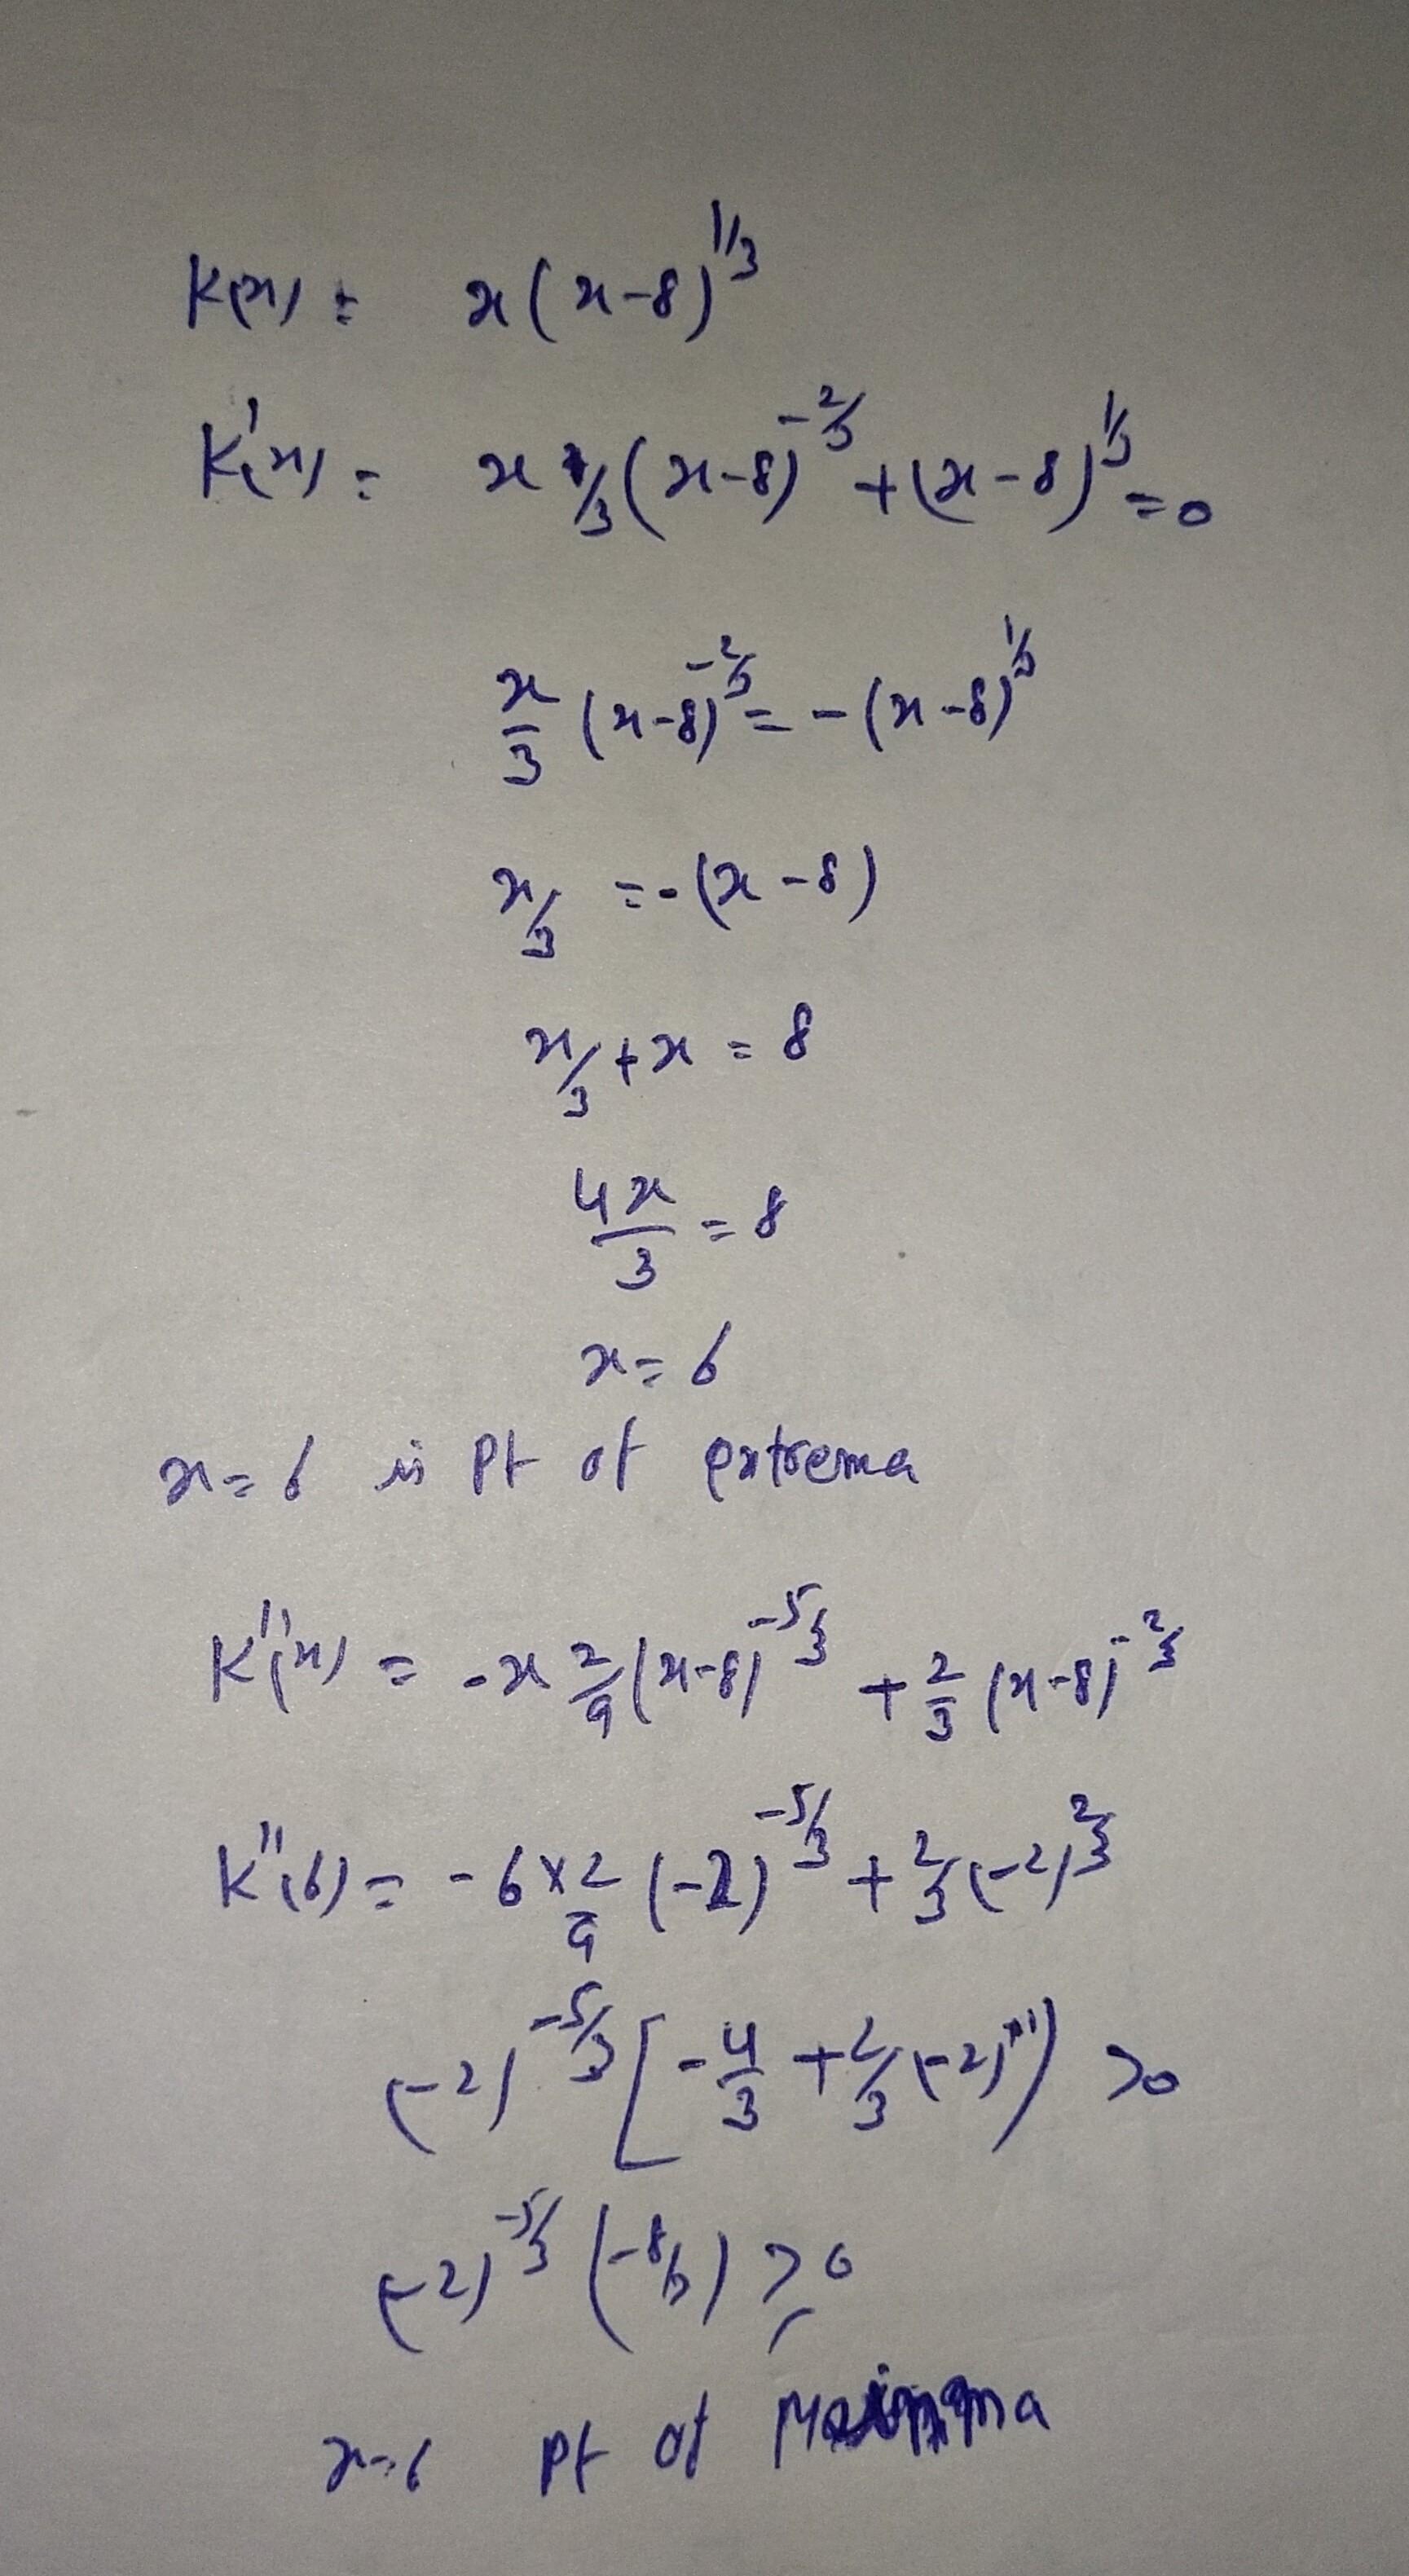 K(x) = x(x-8)^1/3
K'(x) = x 1/3 (x-8)^-2/3 + (x-8)^1/3 = 0
x/3 (x-8)^-2/3 = -(x-8)^1/3
x/3 = -(x-8)
x/3 + x = 8
4x/3 = 8
x = 6
x = 6 is Pt of extrema
K''(x) = -x 2/9 (x-8)^-5/3 + 2/3 (x-8)^-2/3
K''(6) = -6×2/9 (-2)^-5/3 + 2/3 (-2)^2/3
(-2)^-5/3 [-4/3 + 2/3 (-2)) >0
(-2)^-5/3 (-8/3) >0
x=6 Pt of